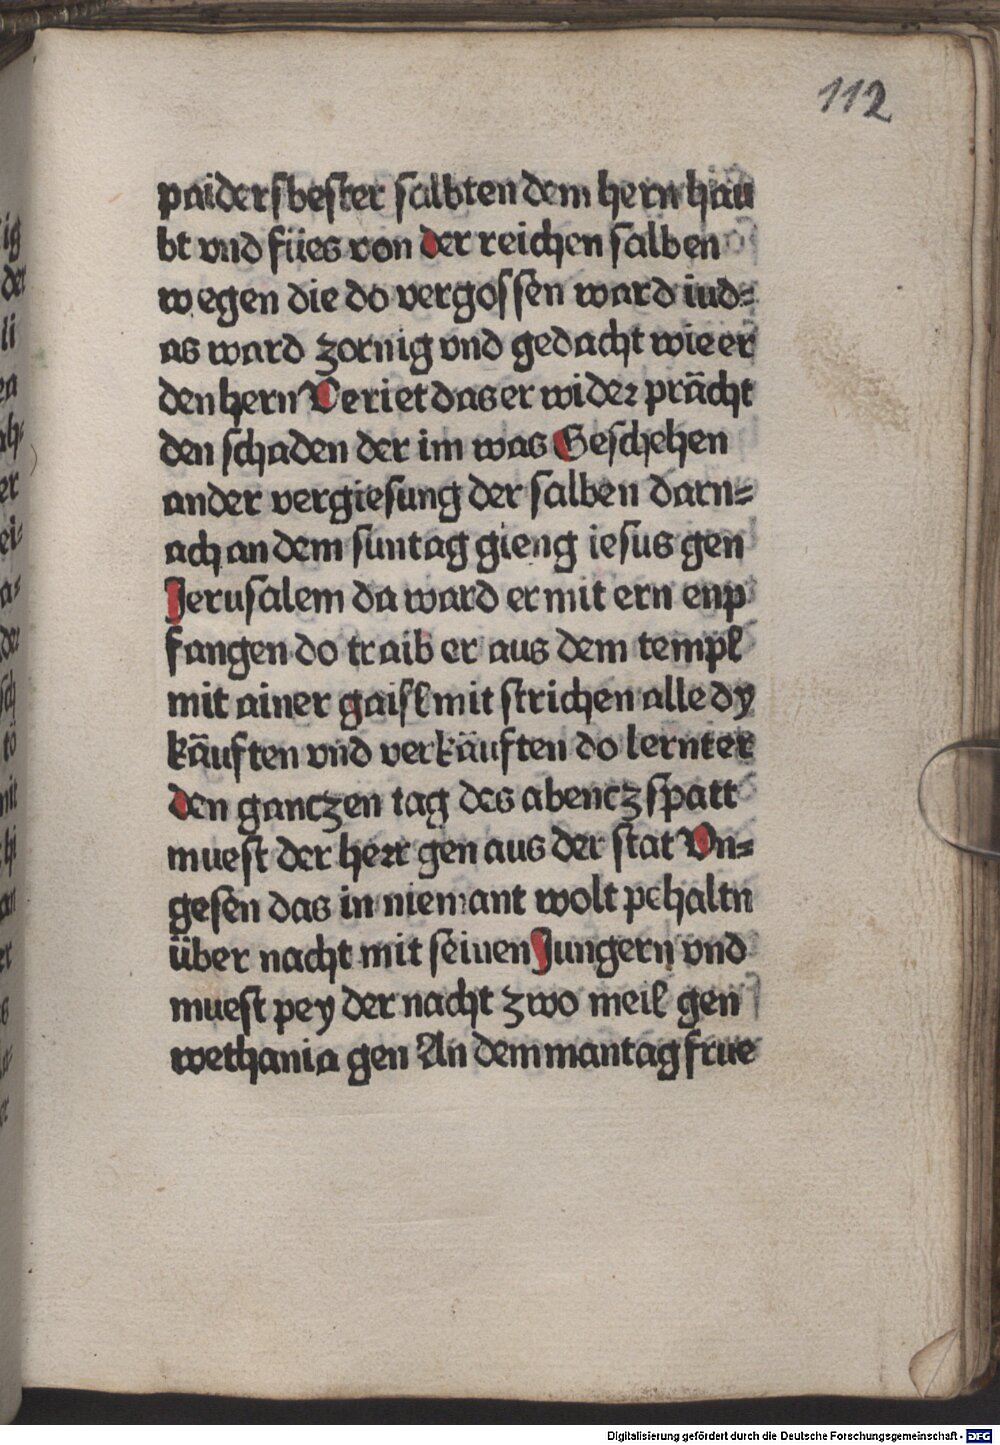 112
paider sbester salbten dem hern hau
bt vnd fües von der reichen salben
wegen die do vergossen ward iud=
as ward zornig vnd gedacht wie er
den hern Veriet das er wider prächt
den schaden der im was Geschehen
ander vergiesung der salben darn=
ach an dem suntag gieng iesus gen
Jerusalem da ward er mit ern enp
fangen do traib er aus dem templ
mit ainer gaisl mit strichen alle dy
käuften vnd verkäuften do lernt er
den ganczen tag des abencz spatt
muest der herr gen aus der stat Vn=
gesen das in niemant wolt pehaltn
über nacht mit seinen Jungern vnd
muest pey der nacht zwo meil gen
wethania gen An dem mantag frue
Digitalisierung gefördert durch die Deutsche Forschungsgemeinschaft - DFG